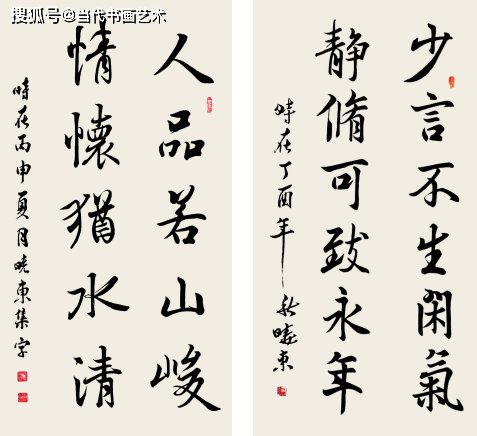 搜狐号@当代书画艺术
少言不生閑氣
靜脩可致永年
時在丁酉年秋曉東
人品若山峻
情懷猶水清
時在丙申夏月曉東集字